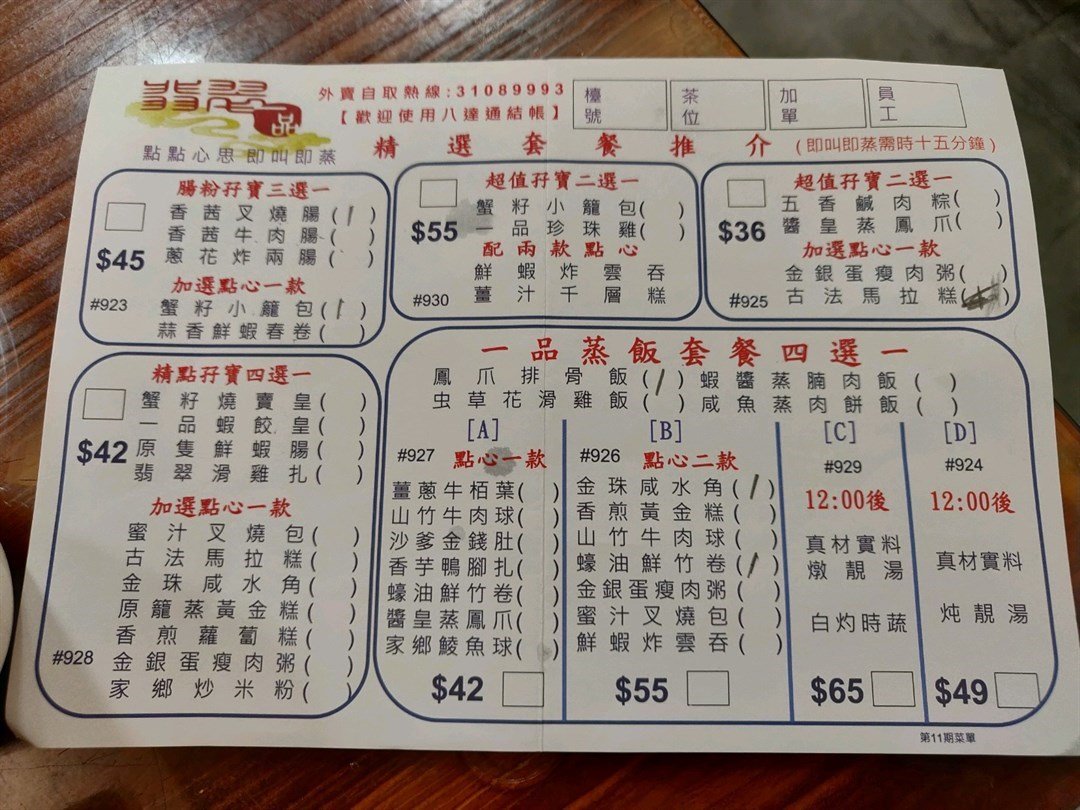 翡翠
一品
外賣自取熱線:31089993
【歡迎使用八達通結帳】
檯號
茶位
加單
員工
點點心思 即叫即蒸
精選套餐推介
(即叫即蒸需時十五分鐘)
腸粉孖寶三選一
香茜叉燒腸( )
香茜牛肉腸( )
蔥花炸兩腸( )
$45
加選點心一款
#923
蟹籽小籠包( )
蒜香鮮蝦春卷( )
超值孖寶二選一
蟹籽小籠包( )
一品珍珠雞( )
$55
配兩款點心
鮮蝦炸雲吞
#930
薑汁千層糕
超值孖寶二選一
五香鹹肉粽( )
醬皇蒸鳳爪( )
$36
加選點心一款
金銀蛋瘦肉粥( )
#925
古法馬拉糕( )
精點孖寶四選一
蟹籽燒賣皇( )
一品蝦餃皇( )
原隻鮮蝦腸( )
$42
翡翠滑雞扎( )
加選點心一款
蜜汁叉燒包( )
古法馬拉糕( )
金珠咸水角( )
原籠蒸黃金糕( )
香煎蘿蔔糕( )
#928
金銀蛋瘦肉粥( )
家鄉炒米粉( )
一品蒸飯套餐四選一
鳳爪排骨飯( / ) 蝦醬蒸腩肉飯( )
虫草花滑雞飯( ) 咸魚蒸肉餅飯( )
[A]
#927 點心一款
薑蔥牛栢葉( )
山竹牛肉球( )
沙爹金錢肚( )
香芋鴨腳扎( )
蠔油鮮竹卷( )
醬皇蒸鳳爪( )
家鄉鯪魚球( )
$42
[B]
#926 點心二款
金珠咸水角( / )
香煎黃金糕( )
山竹牛肉球( )
蠔油鮮竹卷( / )
金銀蛋瘦肉粥( )
蜜汁叉燒包( )
鮮蝦炸雲吞( )
$55
[C]
#929
12:00後
真材實料
燉靚湯
白灼時蔬
$65
[D]
#924
12:00後
真材實料
炖靚湯
$49
第11期菜單